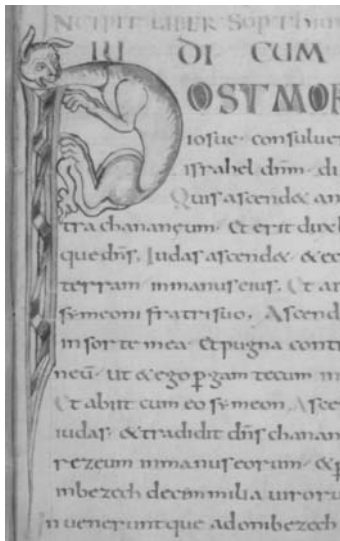 NCIPIT LIBER SOPTHIM
IU DI CUM
POST MOR
iosue· consuluer
israhel dnm̄· di
Quis ascend& an
tra chananęum· Et erit dux b
que dn̄s. Iudas ascend&· & ec
terram in manus eius. Et ai
symeoni fratri suo. Ascend
in sorte mea· Et pugna contr
neū· ut & ego ꝑgam tecum in
Et abiit cum eo symeon. Asce
iudas· & tradidit dn̄s chanan
rezeum in manus eorum· & p
in bezech decem milia uiroru
n uenerunt que adonibezech